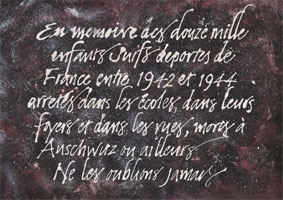 En memoire des douze mille
enfants Juifs deportes de
France entre 1942 et 1944
arretés dans les écoles, dans leurs
foyers et dans les rues, mores à
Auschwitz ou ailleurs
Ne les oublions jamais